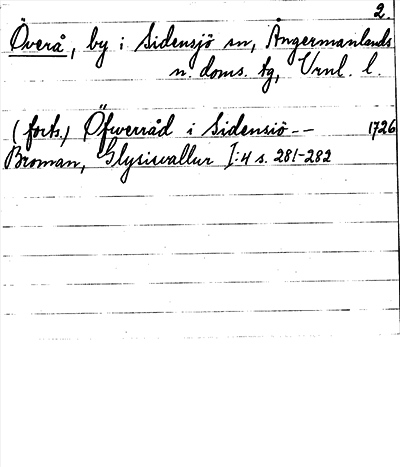 2.
Överå, by i Sidensjö sn, Ångermanlands
n. doms. tg, Vrnl. l.
(forts.) Öfwerråd i Sidensiö-- 1726
Broman, Glysiswallur I:4 s. 281-282